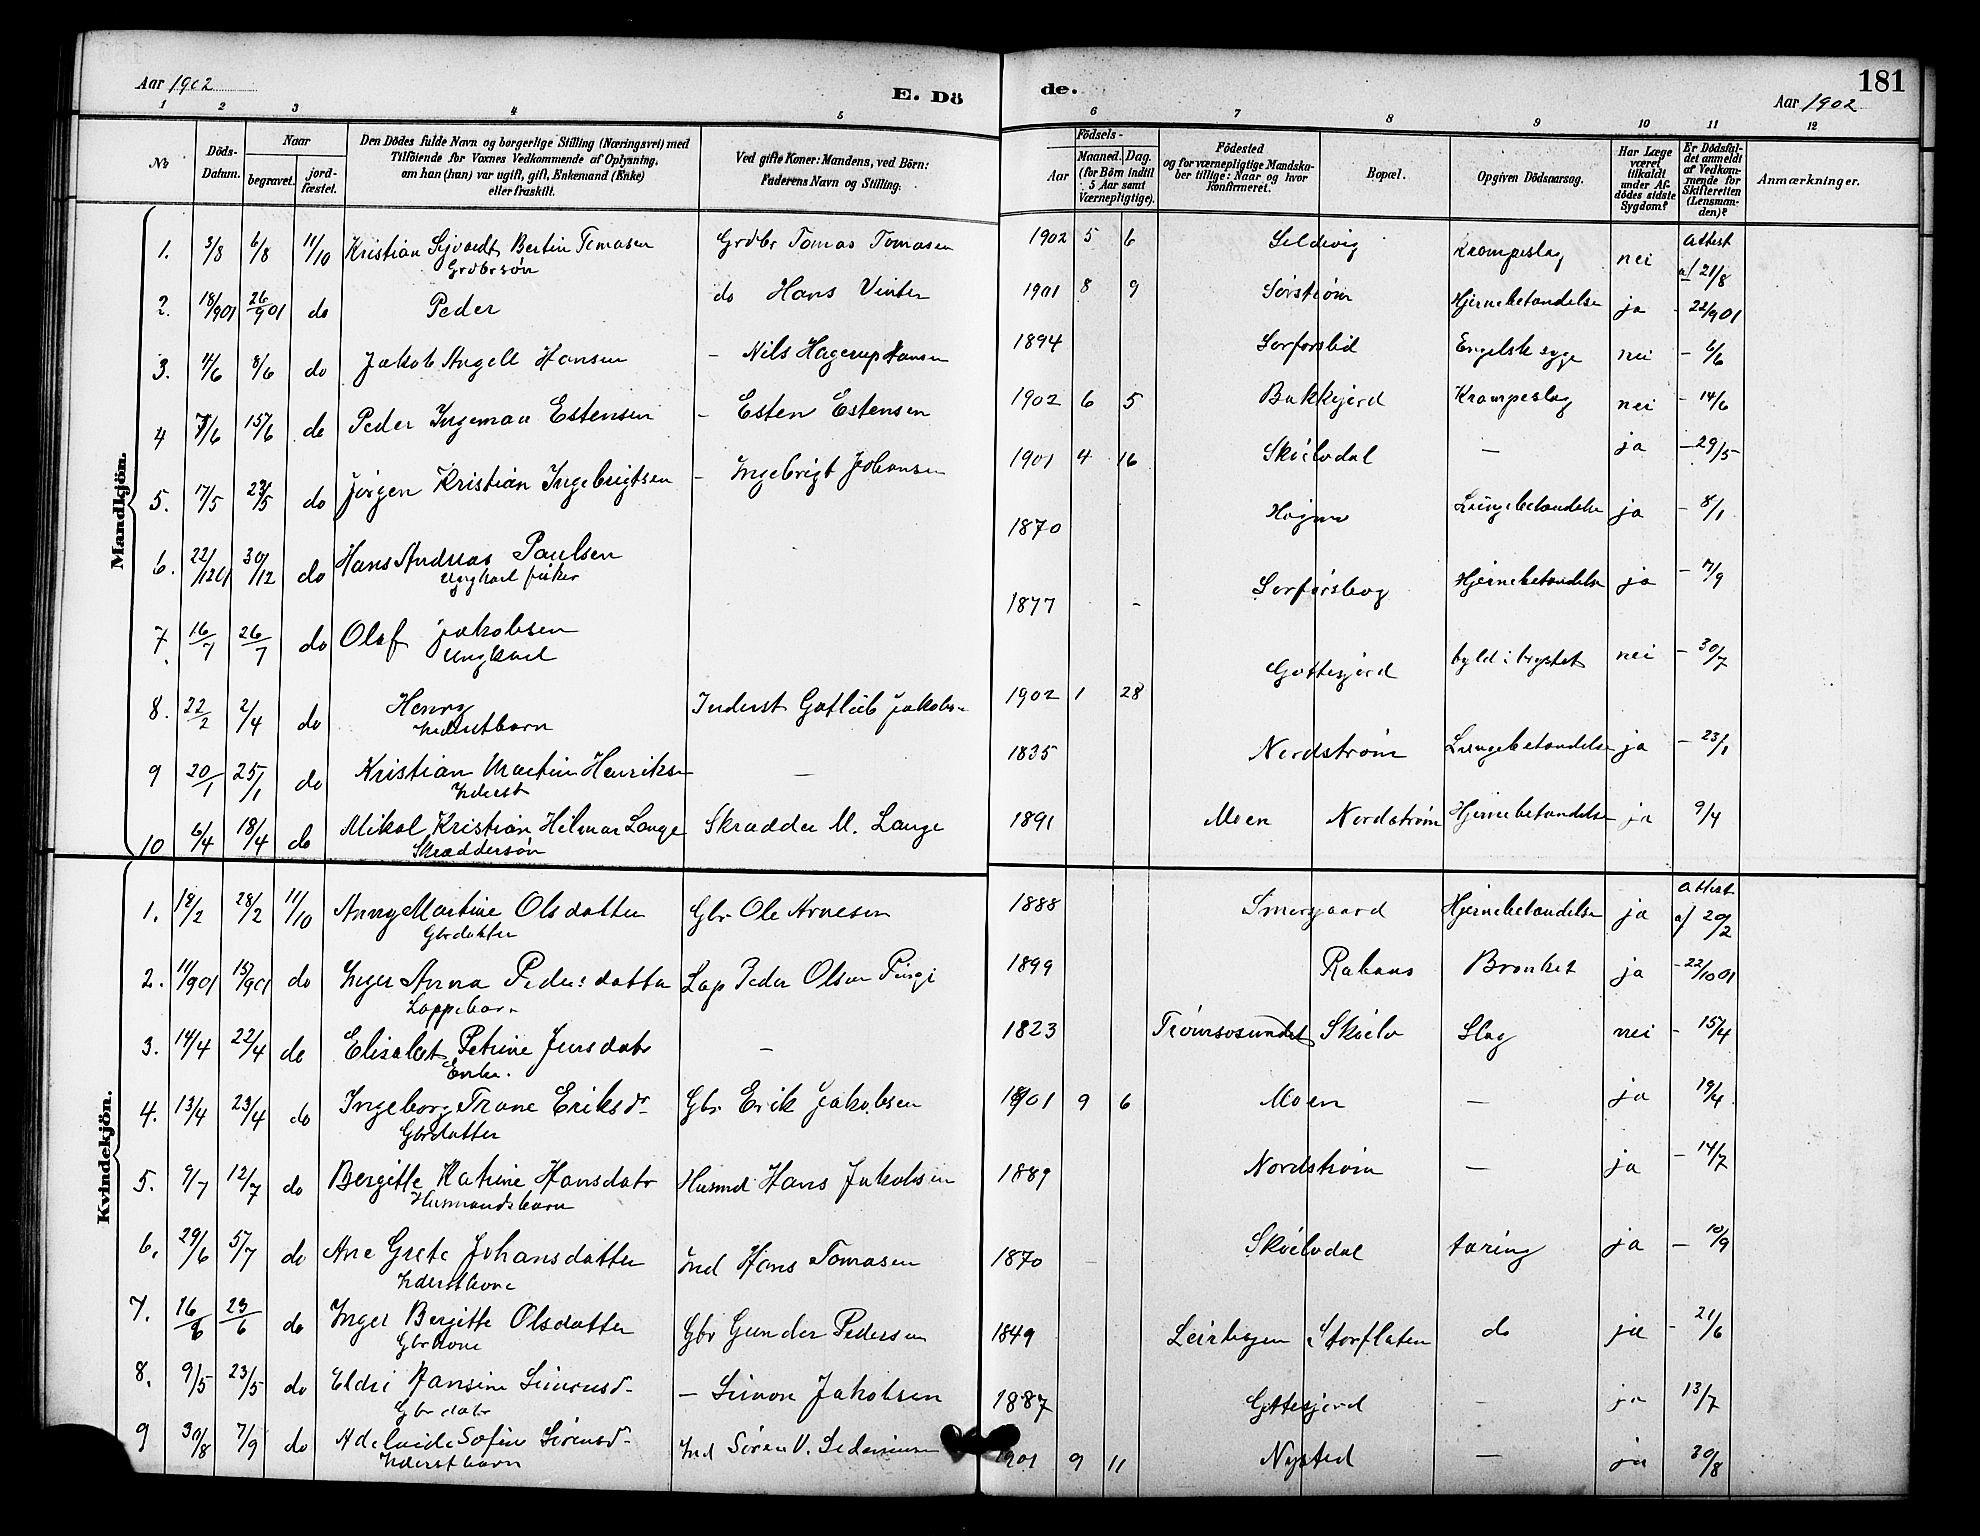 Aar 1902
E. Dö
de.
181
Aar 1902
1 2 3 4 5 6 7 8 9 10 11 12
No
Döds-Datum.
Naar
begravet.
jord-fæstet.
Den Dödes fulde Navn og borgerlige Stilling (Næringsvei) med
Tilföiende for Voxnes Vedkommende af Oplysning,
om han (hun) var ugift, gift, Enkemand (Enke)
eller fraskilt.
Ved gifte Koner: Mandens, ved Börn:
Faderens Navn og Stilling.
Födsels-
Aar
Maaned. Dag.
(for Börn indtil
5 Aar samt
Værnepligtige).
Födested
og for værnepligtige Mandska-
ber tillige: Naar og hvor
Konfirmeret.
Bopæl.
Opgiven Dödsaarsag.
Har Læge
været
tilkaldt
under Af-
dödes sidste
Sygdom?
Er Dödsfal-
det anmeldt
af Vedkom-
mende for
Skifteretten
(Lensman-
den)?
Anmærkninger.
Mandkjön.
1. 3/8 6/8 11/10 Kristian Sigvardt Bertin Tomasen Grdbr Tomas Tomasen 1902 5 6 Seldevig Krampeslag nei Attest af 21/8
Grdbrsøn
2. 18/901 26/901 do Peder do Hans Vinter 1901 8 9 Sørstrøm Hjernebetændelse ja - 22/901
3. 4/6 8/6 do Jakob Angell Hansen - Nils Hagerup Hansen 1894 Sørforsbd Engelsk syge nei - 6/6
4 7/6 15/6 do Peder Ingeman Estensen - Esten Estensen 1902 6 5 Bakkejord Krampeslag nei - 14/6
5. 7/5 23/5 do Jørgen Kristian Ingebrigtsen - Ingebrigt Johansen 1901 4 16 Skøelvdal - ja - 29/5
6. 22/1201 30/12 do Hans Andreas Paulsen 1870 Lungebetændelse ja - 8/1
Ungkarl fisker
7. 16/7 26/7 do Olaf Jakobsen 1877 - Hjernebetændelse ja - 7/9
Ungkarl
8. 22/2 2/4 do Henry Inderst Gotlieb Jakobs- 1902 1 28 Gottesjord byld i brystet nei - 30/7
Inderstbarn
9 20/1 25/1 do Kristian Martin Henriks- - 1835 Nordstrøm Lungebetændelse ja - 23/1
Inderst
10 6/4 18/4 do Mikal Kristian Hilmar Lange Skrædder M. Lange 1891 Moen Nordstrøm Hjernebetændelse ja 9/4
Skræddersøn
Kvindekjön.
1. 18/2 28/2 11/10 Anny Martine Olsdatter Gbr Ole Arnesen 1888 Smørsgaard Hjernebetændelse ja Attest af 20/2
Gbrdatter
2. 11/901 15/901 do Inger Anna Pedersdatter Lap Peder Olsen Pingi 1899 Bronket ja - 22/1001
Lappebarn
3. 14/4 22/4 do Elisabet Petrine Jensdatr - 1823 Tromsøsundet Skøelv Slag nei - 15/4
Enke.
4. 13/4 23/4 do Ingeborg Trane Eriksdr Gbr Erik Jakobsen 1901 9 6 Moen - ja 19/4
Gbrdatter
5. 9/7 12/7 do Bergitte Katrine Hansdatr Husmd Hans Jakobsen 1889 Nordstrøm - ja - 14/7
Husmandsbarn
6. 29/6 5/7 do Ane Grete Johansdatter Ind Hans Tomasen 1870 Skøelvdal tæring ja - 10/9
Inderstkone
7. 16/6 23/6 do Inger Bergitte Olsdatter Gbr Gunder Pedersen 1849 Storflaten do ja - 21/6
Gbrkone
8. 9/5 23/5 do Eldri Hansine Simonsd- - Simon Jakobsen 1887 Gottesjord - ja 13/7
Gbrdatr
9 30/8 7/9 do Adelaide Sofie Sørensd- Ind Søren V. 1901 9 11 Nysted - ja 30/8
Inderstbarn